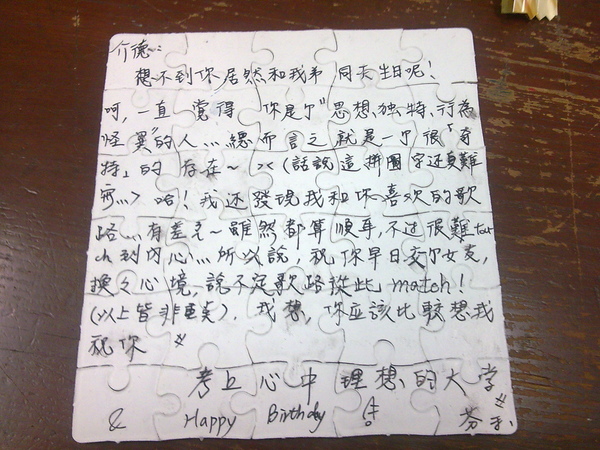 介德：
想不到你居然和我弟同天生日呢！
呵,一直覺得 你是个"思想、独特、行為
怪異"的人...總而言之就是一个很「奇
特」的 存在~ >< (話說這拼圖字还真難
寫...> 哈！我还發現我和你喜欢的歌
路...有差ㄛ~雖然都算順耳,不过很難tou
ch到内心...所以說,祝你早日交个女友,
換个心境,說不定歌路從此 match！
(以上皆非重点). 我想,你應該比較想我
祝你
考上心中理想的大学
& Happy Birthday
芬